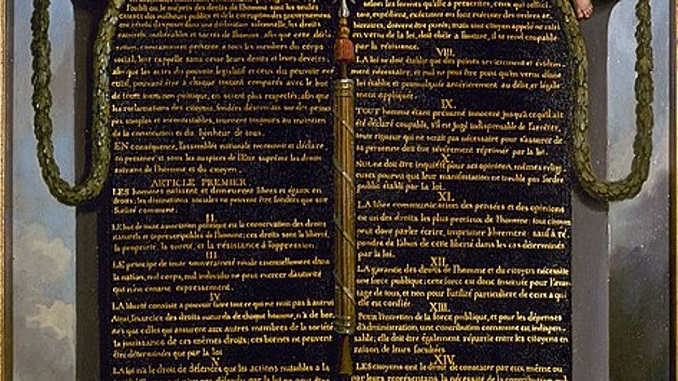 l'oubli ou le mépris des droits de l'homme sont les seules
causes des malheurs publics et de la corruption des gouvernemens
ont résolu d'exposer dans une déclaration solemnelle, les droits
naturels, inaliénables et sacrés de l'homme; afin que cette décla-
ration, constamment présente a tous les membres du corps
social, leur rappelle sans cesse leurs droits et leurs devoirs;
afin que les actes du pouvoir législatif et ceux du pouvoir exé-
cutif, pouvant être a chaque instant comparés avec le but
de toute institution politique, en soient plus respectés; afin que
les reclamations des citoyens, fondées désormais sur des princi-
pes simples et incontestables, tournent toujours au maintien
de la constitution et du bonheur de tous.
EN conséquence, l'assemblée nationale reconnoit et déclare,
en presence et sous les auspices de l'Etre suprême les droits
suivans de l'homme et du citoyen.
ARTICLE PREMIER.
LES hommes naissent et demeurent libres et égaux en
droits; les distinctions sociales ne peuvent être fondées que sur
l'utilité commune.
II.
LE but de toute association politique est la conservation des droits
naturels et imprescriptibles de l'homme; ces droits sont la liberté,
la propriété, la sureté, et la résistance à l'oppression.
III
LE principe de toute souveraineté réside essentiellement dans
la nation, nul corps, nul individu ne peut exercer d'autorité
qui n'en émane expressement.
IV
LA liberté consiste a pouvoir faire tout ce qui ne nuit pas a autrui
Ainsi, l'exercice des droits naturels de chaque homme, n'a de bor-
nes que celles qui assurent aux autres membres de la société
la jouissance de ces mêmes droits; ces bornes ne peuvent
être déterminées que par la loi
V
LA loi n'a le droit de défendre que les actions nuisibles a la
selon les formes qu'elle a prescrites, ceux qui sollici-
tent, expédient, exécutent ou font exécuter des ordres ar-
bitraires, doivent être punis; mais tout citoyen appelé ou saisi
en vertu de la loi, doit obéir a l'instant, il se rend coupable
par la résistance.
VIII.
LA loi ne doit établir que des peines strictement et évidem-
ment nécessaires, et nul ne peut être puni qu'en vertu d'une
loi établie et promulguée antérieurement au délit, et légale-
ment appliquée.
IX.
TOUT homme étant présumé innocent jusqu'a ce qu'il ait
été déclaré coupable, s'il est jugé indispensable de l'arrêter,
toute rigueur qui ne serait pas nécessaire pour s'assurer de
sa personne doit être sévèrement réprimée par la loi.
X.
NUL ne doit être inquiété pour ses opinions, mêmes religi-
euses pourvu que leur manifestation ne trouble pas l'ordre
public établi par la loi.
XI.
LA libre communication des pensées et des opinions
est un des droits les plus precieux de l'homme; tout citoyen
peut donc parler écrire, imprimer librement; sauf a ré-
pondre de l'abus de cette liberté dans les cas déterminés
par la loi.
XII.
LA garantie des droits de l'homme et du citoyen nécessite
une force publique; cette force est donc instituée pour l'avan-
tage de tous, et non pour l'utilité particuliere de ceux a qui
elle est confiée.
XIII.
POUR l'entretien de la force publique, et pour les dépenses
d'administration, une contribution commune est indispen-
sable; elle doit être également répartie entre les citoyens en
raison de leurs facultées.
XIV.
LES citoyens ont le droit de constater par eux même ou
par leurs représentans, la nécessité de la contribution pu-